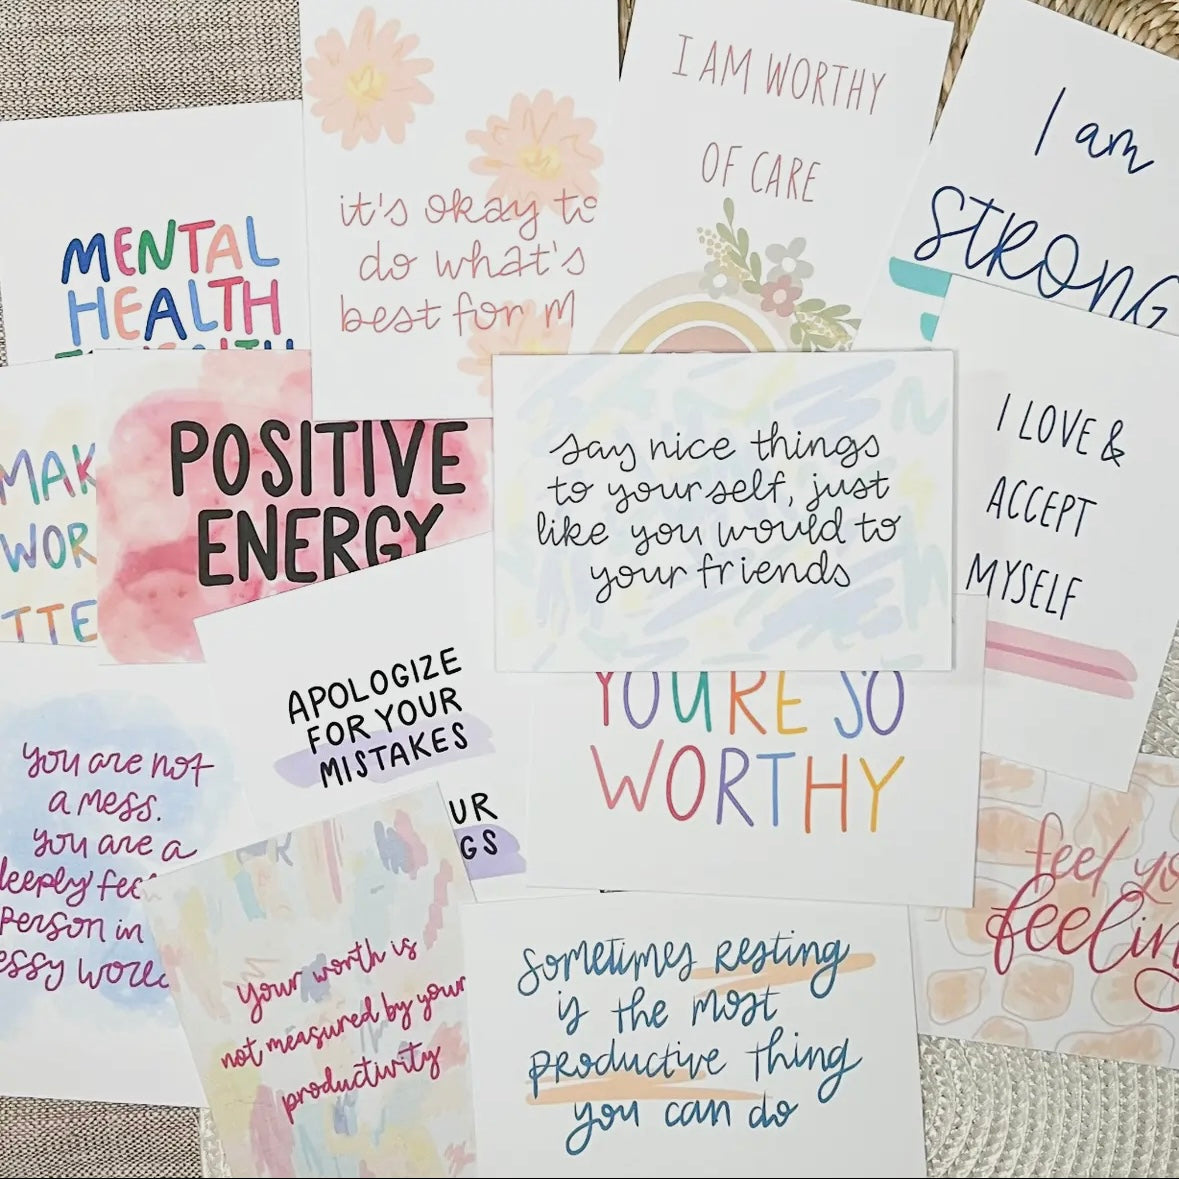 I AM WORTHY
OF CARE
I am
STRONG
it's okay to
do what's
best for M
MENTAL
HEALTH
POSITIVE
ENERGY
MAK
WOR
TTE
say nice things
to yourself, just
like you would to
your friends
I LOVE &
ACCEPT
MYSELF
APOLOGIZE
FOR YOUR
MISTAKES
UR
GS
YOU'RE SO
WORTHY
you are not
a mess.
you are a
deeply fee
person in
essy world
feel yo
feelin
your worth is
not measured by your
productivity
sometimes resting
is the most
productive thing
you can do